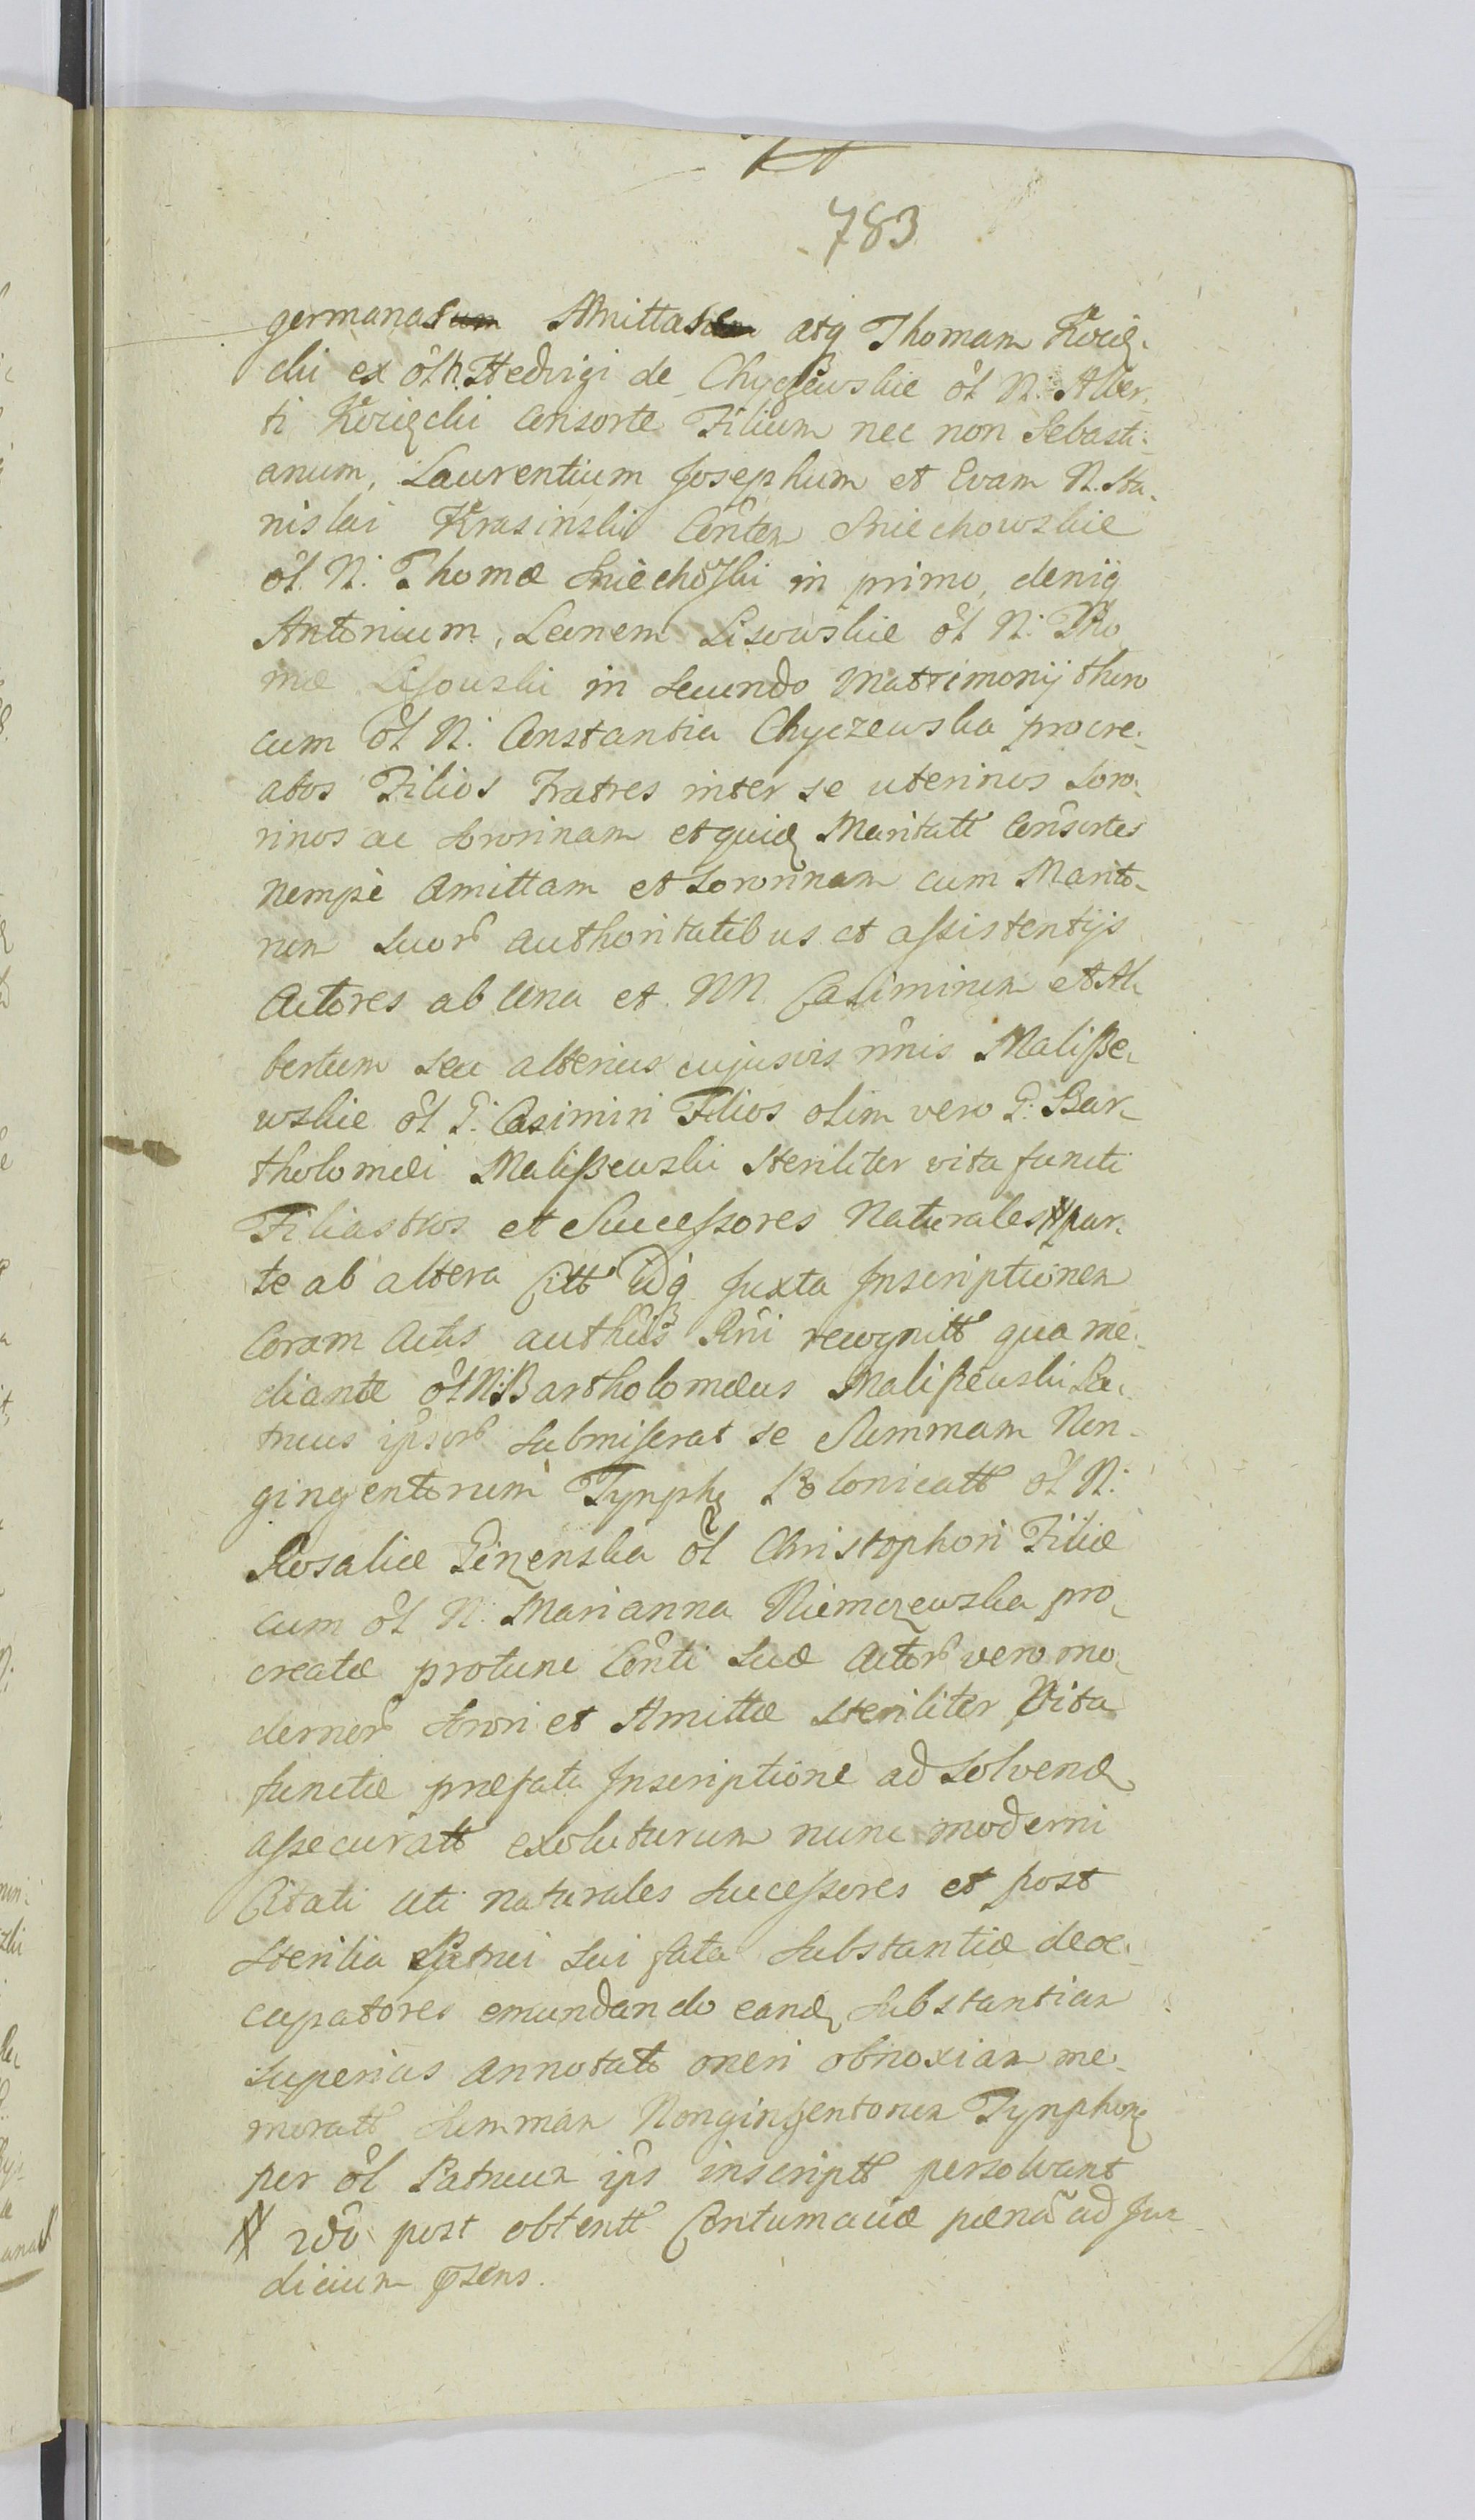 783
germanas Amittas atq Thomam Kocię
cki ex ol N. Hedvigi de Chyczewskie ol N. Alber
ti Kocięcki Consorte Filium nec non Sebasti
anum, Laurentium Josephum et Evam N. Sta
nislai Krasinski Contem Sniechowskie
ol. N. Thomæ Sniechowski in primo, deniq
Antonium, Leonem Lisowskie ol N: Tho
mæ Lisowski in Secundo Matrimonij thoro
cum ol N: Constantia Chyczewska procre
atos Filios Fratres inter se uterinos Soro
rinos ac Sororinam et quidę Maritatt Consortes
nempè Amittam et Sororinam cum Marito
rum Suor authoritatibus et assistentijs
Actores ab una et NN Casimirum et Al
bertum seu alterius cujusvis nnis Malisze
wskie ol G: Casimiri Filios olim vero G: Bar
tholomæi Maliszewski Steriliter vita functi
Filiastros et Successores Naturales # par
te ab altera Citt idq Juxta Inscriptionem
Coram Actis authcis Rni recognitt qua me
diante ol N: Bartholomæus Maliszewski Pa
truus ipsor Submiserat se Summam Non
gingentorum Tynphę Polonicatt ol N:
Rosaliæ ol Christophori Filiæ
cum ol N: Marianna Niemczewska pro
creatæ protunc Conti Suæ Actor vero mo
dernor Sorori et Amittæ Steriliter Vita
functæ præfata Inscriptione ad Solvendę
assecuratt exoluturum nunc moderni
Citati uti naturales Successores et post
Sterilia Patrui Sui fata Substantiæ deoc
cupatores emundando eandę Substantiam
Superius annotato oneri obnoxiam me
moratt Summam Nongingentorum Tynphorę
per ol Patruum ips inscriptt persolvant
# 2do post obtentt Contumaciæ pœnã ad Ju
dicium psens.